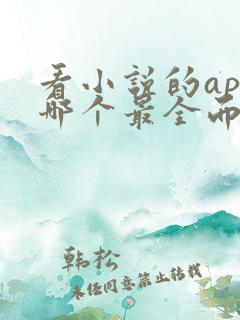 看小说的ap
哪个最全而
韩松
未经同意禁止转载